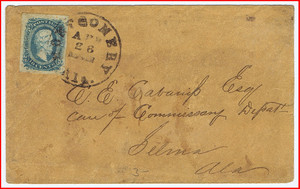 MONTGOMERY
APR
26
ALA.
C. E. Cabaniss, Esq
care of Commissary Depart.
Selma
Ala
3